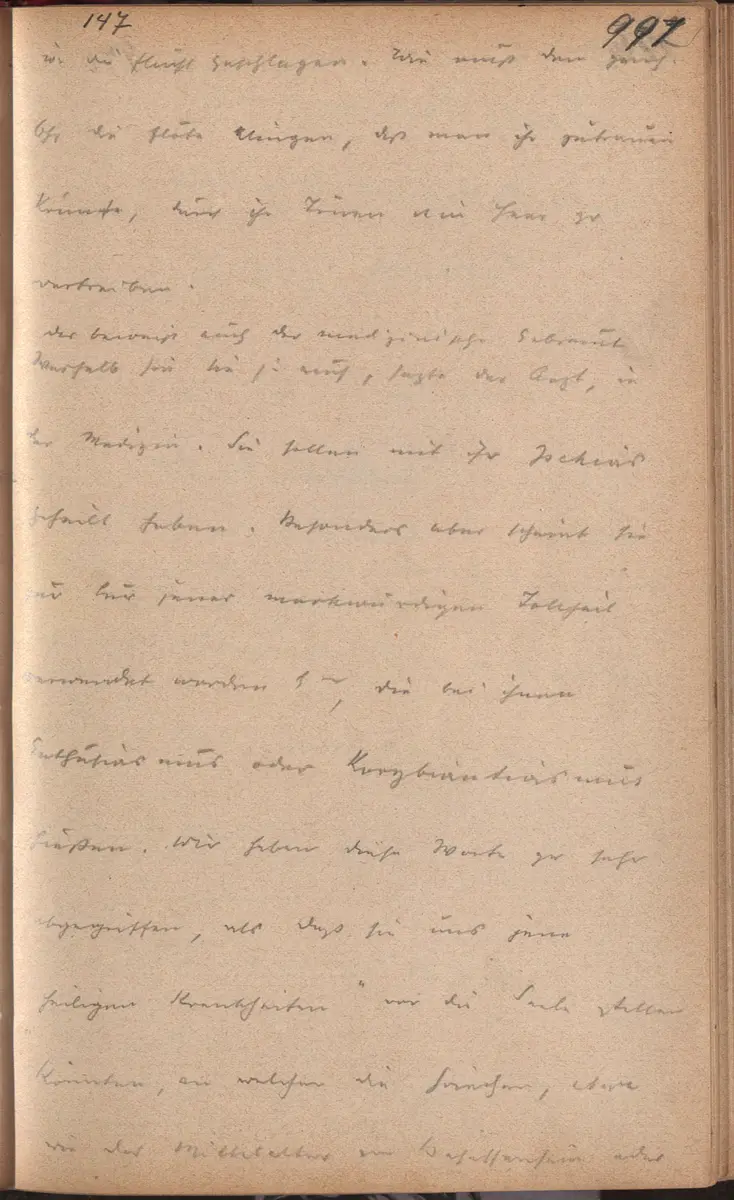 147 997
in die Flucht geschlagen. Wie muß dem griech.
Ohr die Flöte klingen, daß man ihr zutrauen
könnte, durch ihr Tönen ein Heer zu
vertreiben.
das beweist auch der medizinische Gebrauch
Weshalb sie sie ja auch, sagte der Arzt, in
der Medizin. Sie sollen mit ihr Ischias
geheilt haben. Besonders aber scheint sie
zur Kur jener merkwürdigen Tollheit
verwendet worden, die bei ihnen
Enthusiasmus oder Korybiantiasmus
hießen. Wir haben diese Worte zu sehr
abgegriffen, als daß sie uns jene
heiligen Krankheiten" vor die Seele stellen
könnten, an welchen die Griechen, etwa
wie das Mittelalter an Besessensein oder